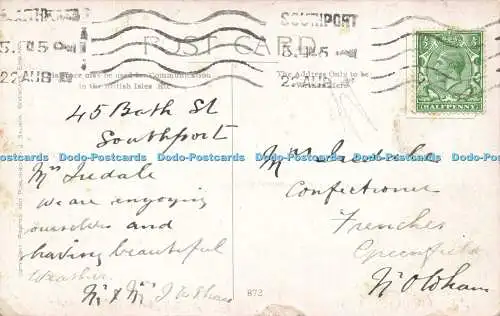 SOUTHPORT
5.45 PM
22 AUG
SOUTHPORT
22 AUG
POST CARD
HALFPENNY
This space may be used for Communication
in the British Isles etc.
The Address Only to be
45 Bath St
Southport
Mrs Iredale
we are enjoying
ourselves and
having beautiful
weather.
Mr & Mrs
Mrs Iredale
Confectioner
Frenches
Greenfield
Nr Oldham
873
Dodo-Postcards Dodo-Postcards Dodo-Postcards Dodo-Postcards Dodo-Postcards Dodo-Postcards